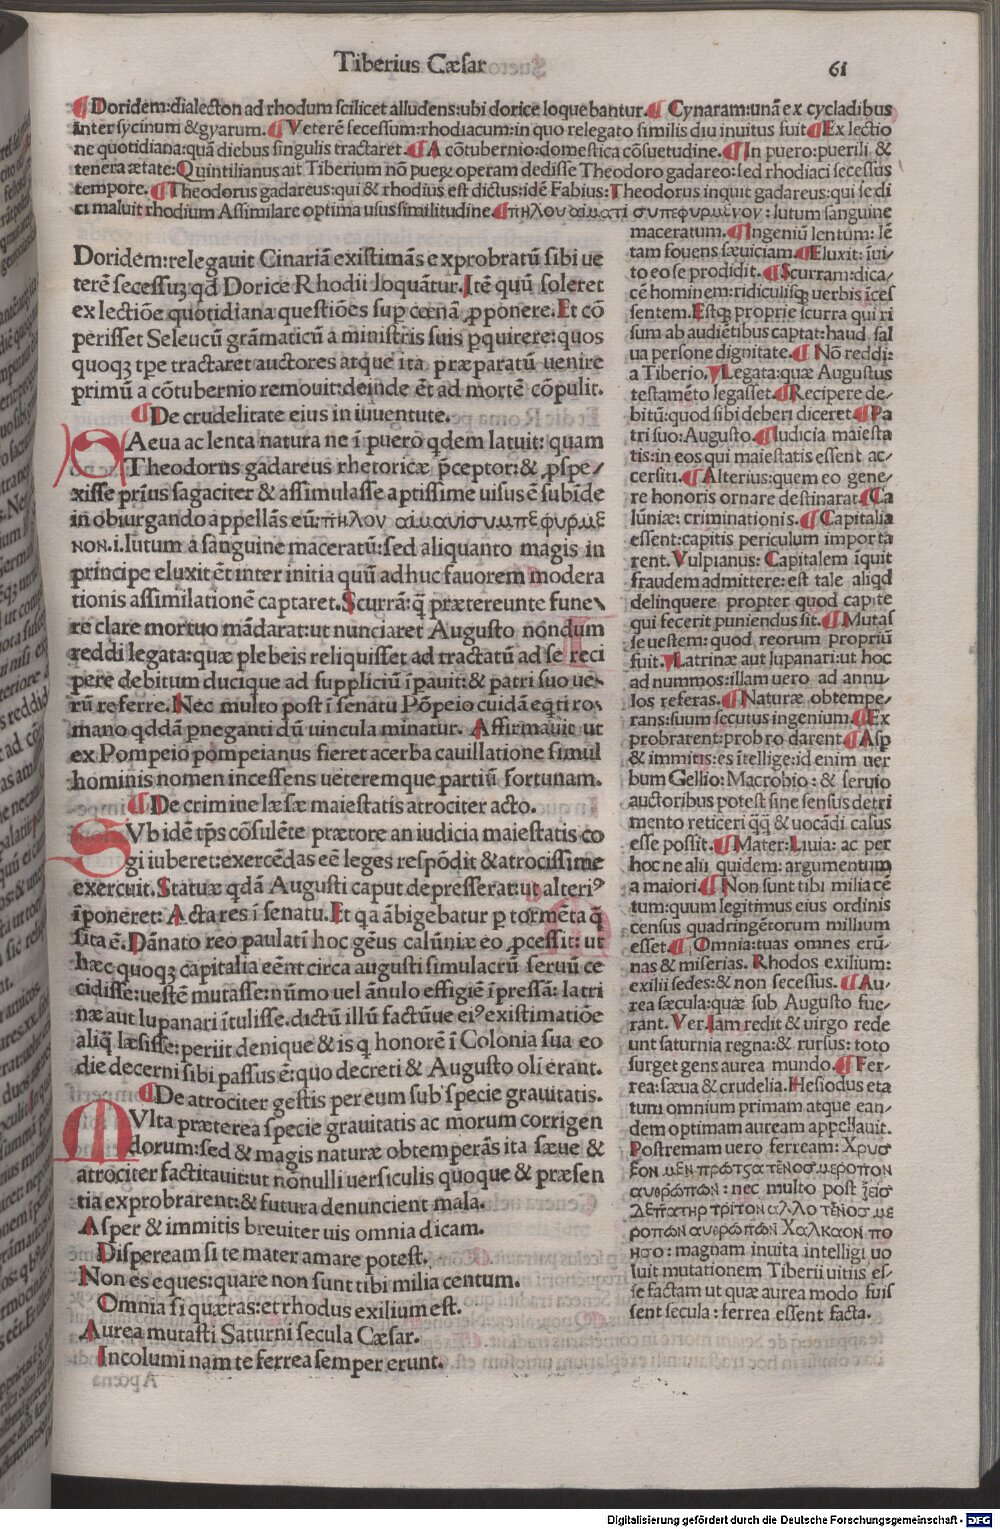 Tiberius Cæſar
61
¶Doridem:dialecton ad rhodum ſcilicet alludens:ubi dorice loquebantur.¶Cynaram:unã ex cycladibus
inter ſycinum & gyarum.¶Veterẽ ſeceſſum:rhodiacum:in quo relegato ſimilis diu inuitus fuit¶Ex lectio
ne quotidiana:quã diebus ſingulis tractaret.¶A cõtubernio:domeſtica cõſuetudine.¶In puero:puerili &
tenera ætate:Quintilianus ait Tiberium nõ pueꝝ operam dediſſe Theodoro gadareo:ſed rhodiaci ſeceſſus
tempore.¶Theodorus gadareus:qui & rhodius eſt dictus:idẽ Fabius:Theodorus inquit gadareus:qui ſe di
ci maluit rhodium Aſſimilare optima uſus ſimilitudine¶πηλον αιματι συπεφυρμενον:lutum ſanguine
Doridem:relegauit Cinariã exiſtimãs exprobratũ ſibi ue
terẽ ſeceſſuꝫ qđ Dorice Rhodii loquãtur.Itẽ quũ ſoleret
ex lectiõe quotidiana queſtiões ſuꝑ cœnã ꝓponere.Et cõ
periſſet Seleucũ grãmaticũ a miniſtris ſuis ꝑquirere:quos
quoqꝫ tꝑe tractaret auctores atque ita præparatũ uenire
primũ a cõtubernio remouit:deinde ẽt ad mortẽ cõpulit.
¶De crudelitate eius in iuuentute.
SAeua ac lenta natura ne ĩ puero qdem latuit:quam
Theodorus gadareus rhetoricæ p̃ceptor:& ꝓſpe/
xiſſe prĩus ſagaciter & aſſimulaſſe aptiſſime uiſus ẽ ſubĩde
in obiurgando appellãs eũ:πηλον αιμαυισυμπεφυρμε
νον.i.lutum a ſanguine maceratũ:ſed aliquanto magis in
principe eluxit ẽt inter initia quũ adhuc fauorem modera
tionis aſſimilationẽ captaret.Scurrã:q̃ prætereunte fune
re clare mortuo mãdarat:ut nunciaret Auguſto nondum
reddi legata:quæ plebeis reliquiſſet ad tractatũ ad ſe reci
pere debitum ducique ad ſuppliciũ ĩꝑauit:& patri ſuo ue
rũ referre.Nec multo poſt ĩ ſenatu Põpeio cuidã eqti ro
mano qddã ꝑneganti dũ uincula minatur. Affirmauit ut
ex Pompeio pompeianus fieret acerba cauillatione ſimul
hominis nomen inceſſens ueteremque partiũ fortunam.
¶De crimine læſæ maieſtatis atrociter acto.
SVb idẽ tꝑs cõſulẽte prætore an iudicia maieſtatis co
gi iuberet:exercẽdas eẽ leges reſpõdit & atrociſſime
exercuit.Statuæ qdã Auguſti caput depreſſerat:ut alteri⁹
ĩponeret: Acta res ĩ ſenatu.Et qa ãbigebatur ꝑ tormẽta q̃
ſita ẽ.Dãnato reo paulatĩ hoc gẽus calũniæ eo ꝓceſſit: ut
hæc quoqꝫ capitalia eẽnt circa auguſti ſimulacrũ ſeruũ ce
cidiſſe:ueſtẽ mutaſſe:nũmo uel ãnulo effigiẽ ĩpreſſã: latri
næ aut lupanari ĩtuliſſe.dictũ illũ factũue ei⁹ exiſtimatiõe
aliq̃ læſiſſe:periit denique & is q honorẽ ĩ Colonia ſua eo
die decerni ſibi paſſus ẽ:quo decreti & Auguſto oli erant.
¶De atrociter geſtis per eum ſub ſpecie grauitatis.
MVlta præterea ſpecie grauitatis ac morum corrigen
dorum:ſed & magis naturæ obtemperãs ita ſæue &
atrociter factitauit:ut nonulli uerſiculis quoque & præſen
tia exprobrarent:& futura denuncient mala.
Aſper & immitis breuiter uis omnia dicam.
Diſpeream ſi te mater amare poteſt.
Non es eques:quare non ſunt tibi milia centum.
Omnia ſi quæras:et rhodus exilium eſt.
Aurea mutaſti Saturni ſecula Cæſar.
Incolumi nam te ferrea ſemper erunt.
maceratum.¶Ingeniũ lentum: lẽ
tam fouens ſæuiciam.¶Eluxit: ĩui
to eo ſe prodidit.¶Scurram:dica
cẽ hominem:ridiculiſqꝫ uerbis ĩceſ
ſentem.Eſtqꝫ proprie ſcurra qui ri
ſum ab audiẽtibus captat:haud ſal
ua perſone dignitate.¶Nõ reddi:
a Tiberio.¶Legata:quæ Auguſtus
teſtamẽto legaſſet.¶Recipere de
bitũ:quod ſibi deberi diceret.¶Pa
tri ſuo:Auguſto.¶Iudicia maieſta
tis:in eos qui maieſtatis eſſent ac
cerſiti.¶Alterius:quem eo gene
re honoris ornare deſtinarat.¶Ca
lũniæ: criminationis.¶Capitalia
eſſent:capitis periculum importa
rent. Vulpianus: Capitalem ĩquit
fraudem admittere: eſt tale aliqđ
delinquere propter quod capite
qui fecerit puniendus ſit.¶Mutaſ
ſe ueſtem: quod reorum propriũ
fuit.¶Latrinæ aut lupanari:ut hoc
ad nummos:illam uero ad annu
los referas.¶Naturæ obtempe
rans:ſuum ſecutus ingenium.¶Ex
probrarent:probro darent.¶Aſp
& immitis: es ĩtellige:id enim uer
bum Gellio: Macrobio: & ſeruio
auctoribus poteſt ſine ſenſus detri
mento reticeri q̃q̃ & uocãdi caſus
eſſe poſſit.¶Mater:Liuia: ac per
hoc ne alii quidem: argumentum
a maiori.¶Non ſunt tibi milia cẽ
tum:quum legitimus eius ordinis
cenſus quadringẽtorum millium
eſſet.¶Omnia:tuas omnes erũ
nas & miſerias. Rhodos exilium:
exilii ſedes:& non ſeceſſus.¶Au
rea ſæcula:quæ ſub Auguſto fue
rant. Ver.Iam redit & uirgo rede
unt ſaturnia regna:& rurſus: toto
ſurget gens aurea mundo.¶Fer
rea:ſæua & crudelia.Heſiodus eta
tum omnium primam atque ean
dem optimam auream appellauit.
Poſtremam uero ferream: Χρυσ
εον μεν πρωτςα τενος μεροπον
ανθρωπων: nec multo poſt ζεις
δε πατηρ τριτον αλλο τενος με
ροπων ανθρωπων Χαλκαον πο
ησο: magnam inuita intelligi uo
luit mutationem Tiberii uitiis eſ
ſe factam ut quæ aurea modo fuiſ
ſent ſecula: ferrea eſſent facta.
Digitalisierung gefördert durch die Deutsche Forschungsgemeinschaft - DFG